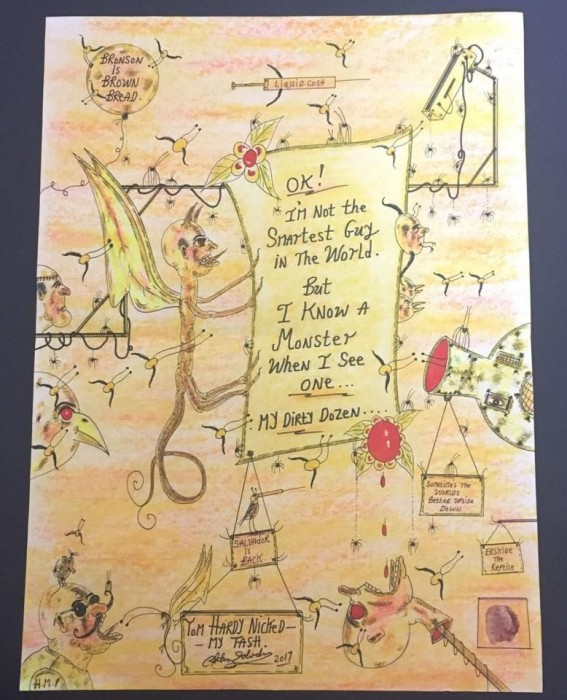 BRONSON
IS
BROWN
BREAD.
LIQUID COSH
OK!
I'M Not the
Smartest Guy
in The World.
But
I KNOW A
Monster
When I See
ONE...
MY DIRTY DOZEN....
SOMETIMES THE
WORLDS
BETTER UPSIDE
DOWN
ERSKINE THE
REPTILE
SALVADOR
IS
BACK
TOM HARDY NICKED—
— MY TASH.
2017
H.M.P